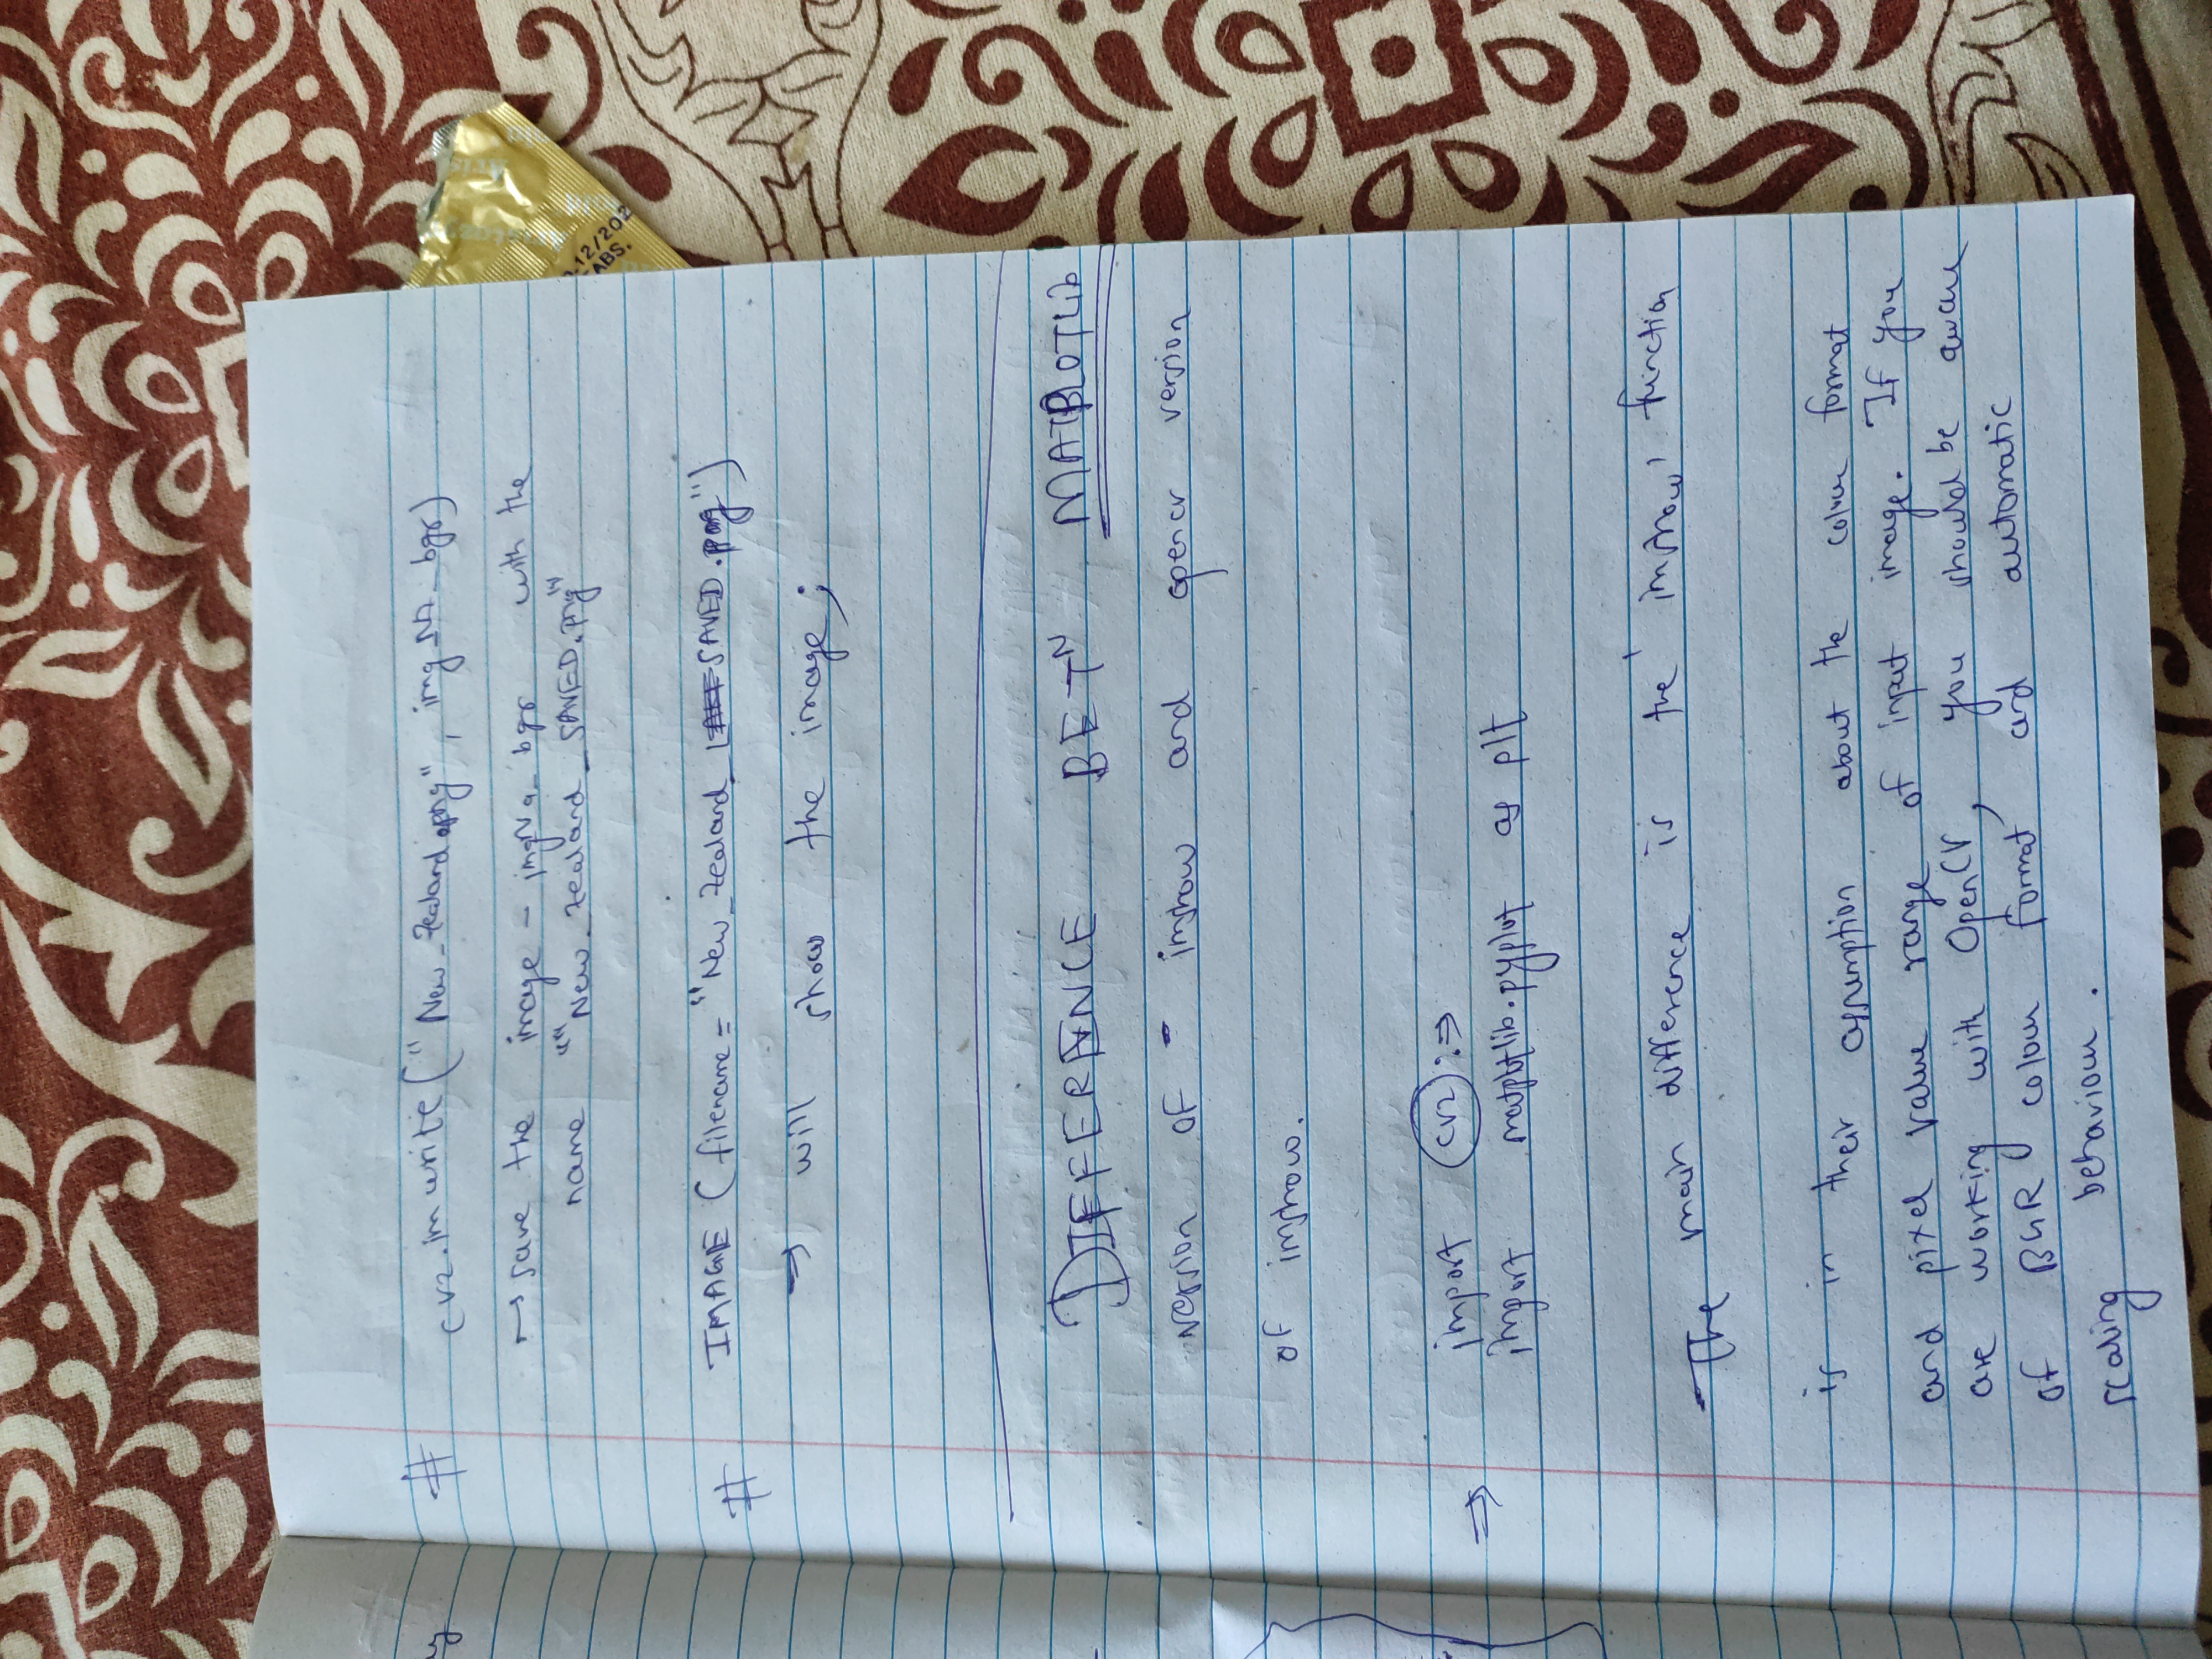 # cv2.imwrite("New_Zealand.png", img_NZ_bgr)
→ save the image - img_NZ_bgr with the
name "New_Zealand_SAVED.png"
# IMAGE (filename = "New_Zealand_SAVED.png")
→ will show the image;
DIFFERENCE BETN MATPLOTLIB
version of - imshow and opencv version
of imshow.
⇒ import cv2 :⇒
import matplotlib.pyplot as plt
The main difference is the 'imshow' function
is in their assumption about the colour format
and pixel value range of input image. If you
are working with OpenCV, you should be aware
of BGR colour format and automatic
scaling behaviour.
-12/202
ABS.